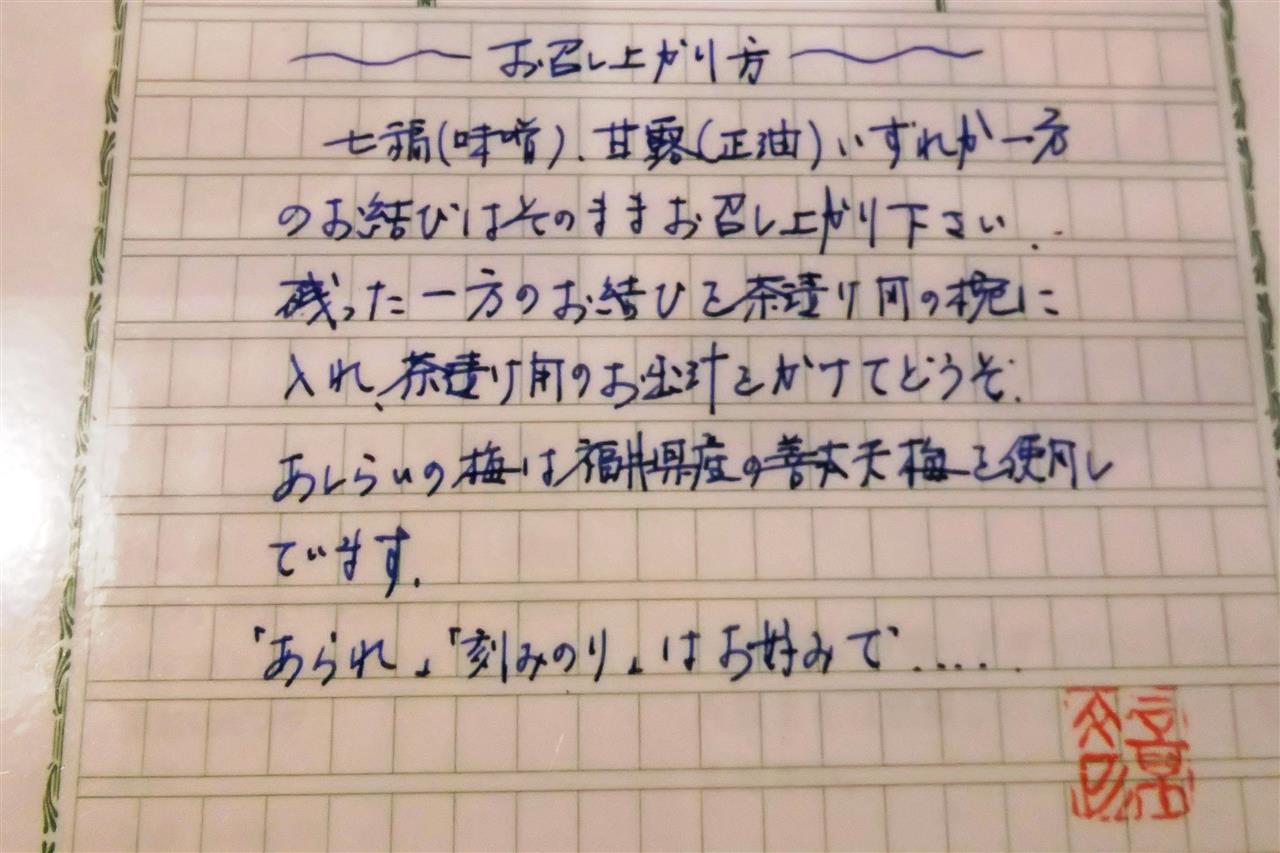 お召し上がり方
七福(味噌)、甘露(正油)いずれか一方
のお結びはそのままお召し上がり下さい…
残った一方のお結びを茶漬け用の椀に
入れ、茶漬け用のお出汁をかけてどうぞ.
あしらいの梅は福井県産の善太夫梅を使用し
ています.
「あられ」「刻みのり」はお好みで.....